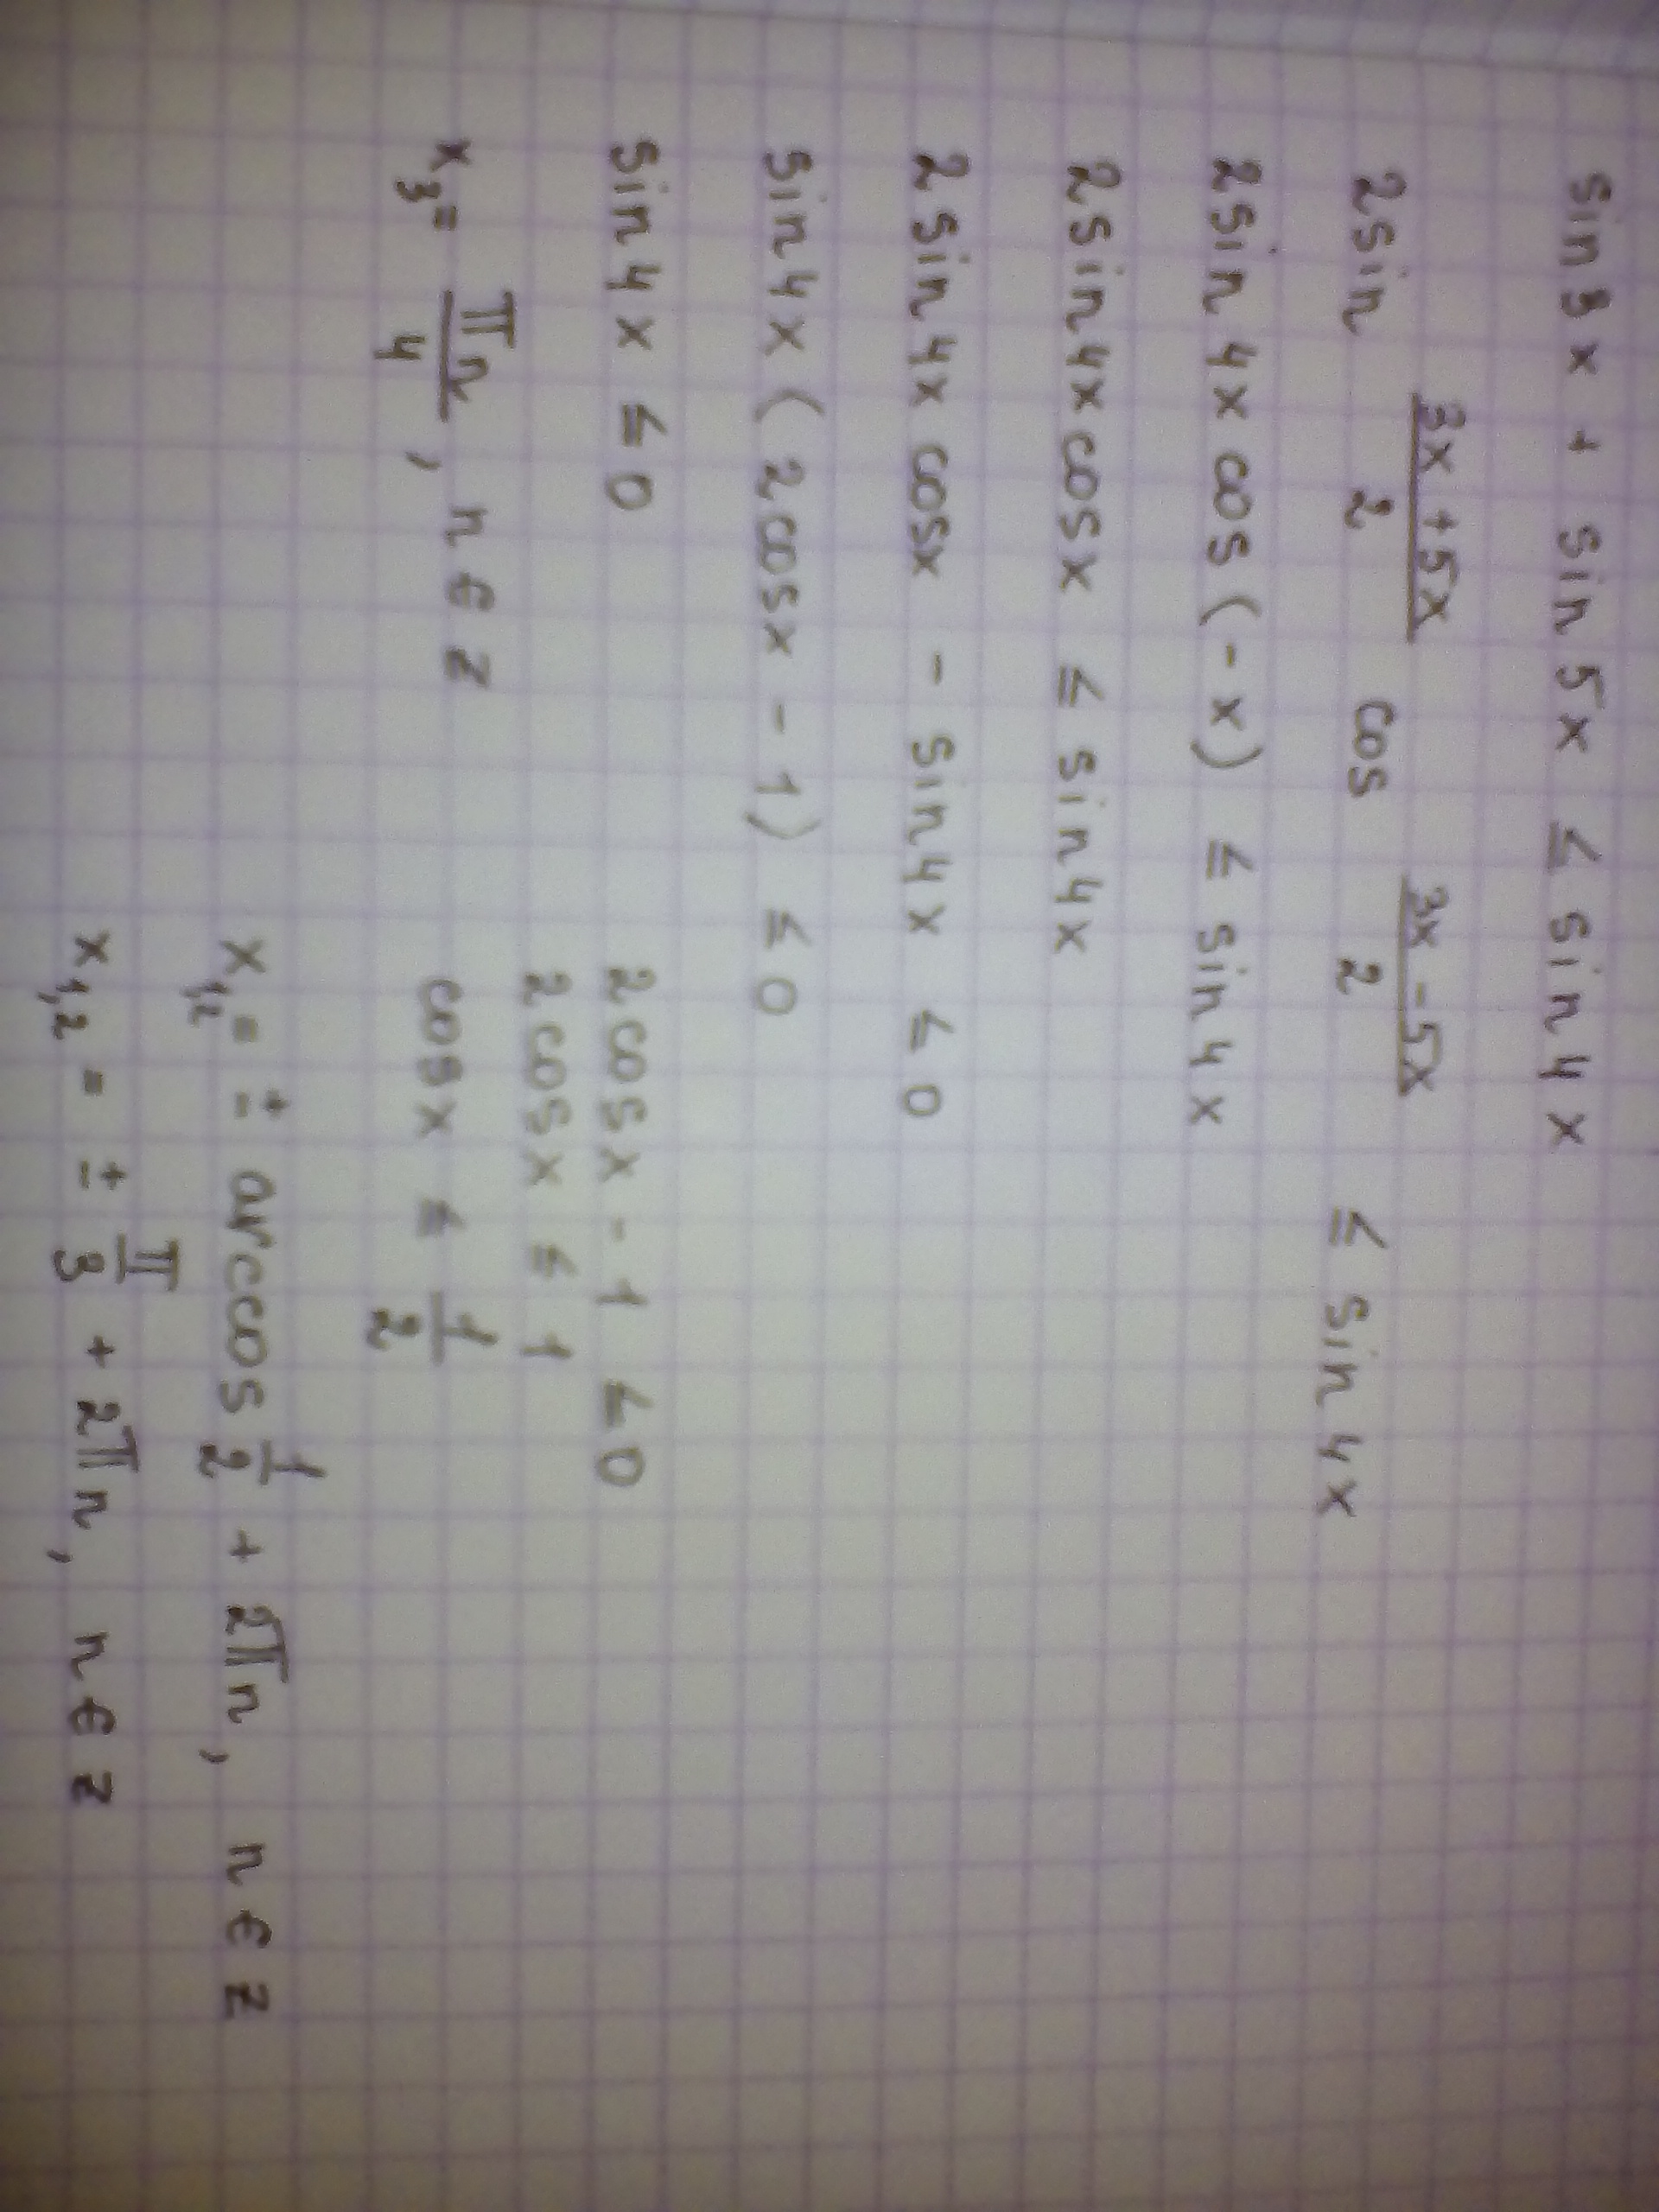 sin 3x + sin 5x ≤ sin 4x
2 sin (3x + 5x)/2 cos (3x - 5x)/2 ≤ sin 4x
2 sin 4x cos (-x) ≤ sin 4x
2 sin 4x cos x ≤ sin 4x
2 sin 4x cos x - sin 4x ≤ 0
sin 4x (2 cos x - 1) ≤ 0
sin 4x ≤ 0
x₃ = πn/4, n ∈ z
2 cos x - 1 ≤ 0
2 cos x ≤ 1
cos x ≤ 1/2
x₁,₂ = ± arccos 1/2 + 2πn, n ∈ z
x₁,₂ = ± π/3 + 2πn, n ∈ z